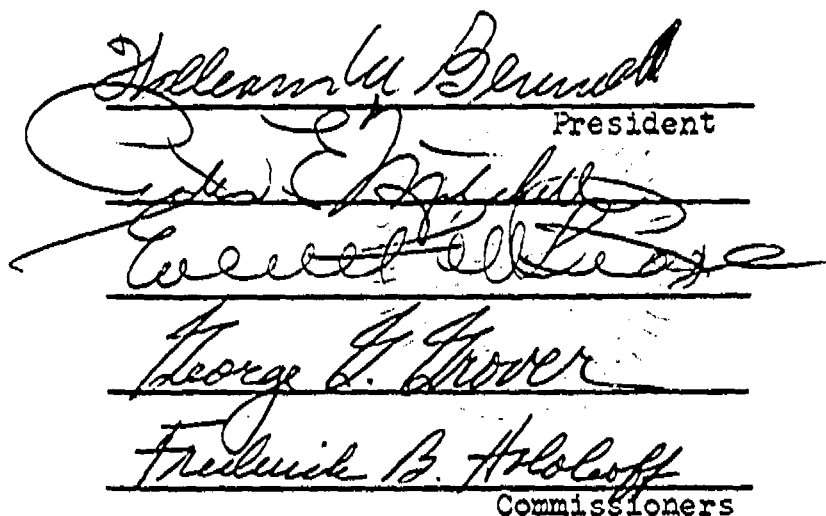 William M Bennett
President
Peter E Mitchell
George G. Grover
Frederick B. Holoboff
Commissioners